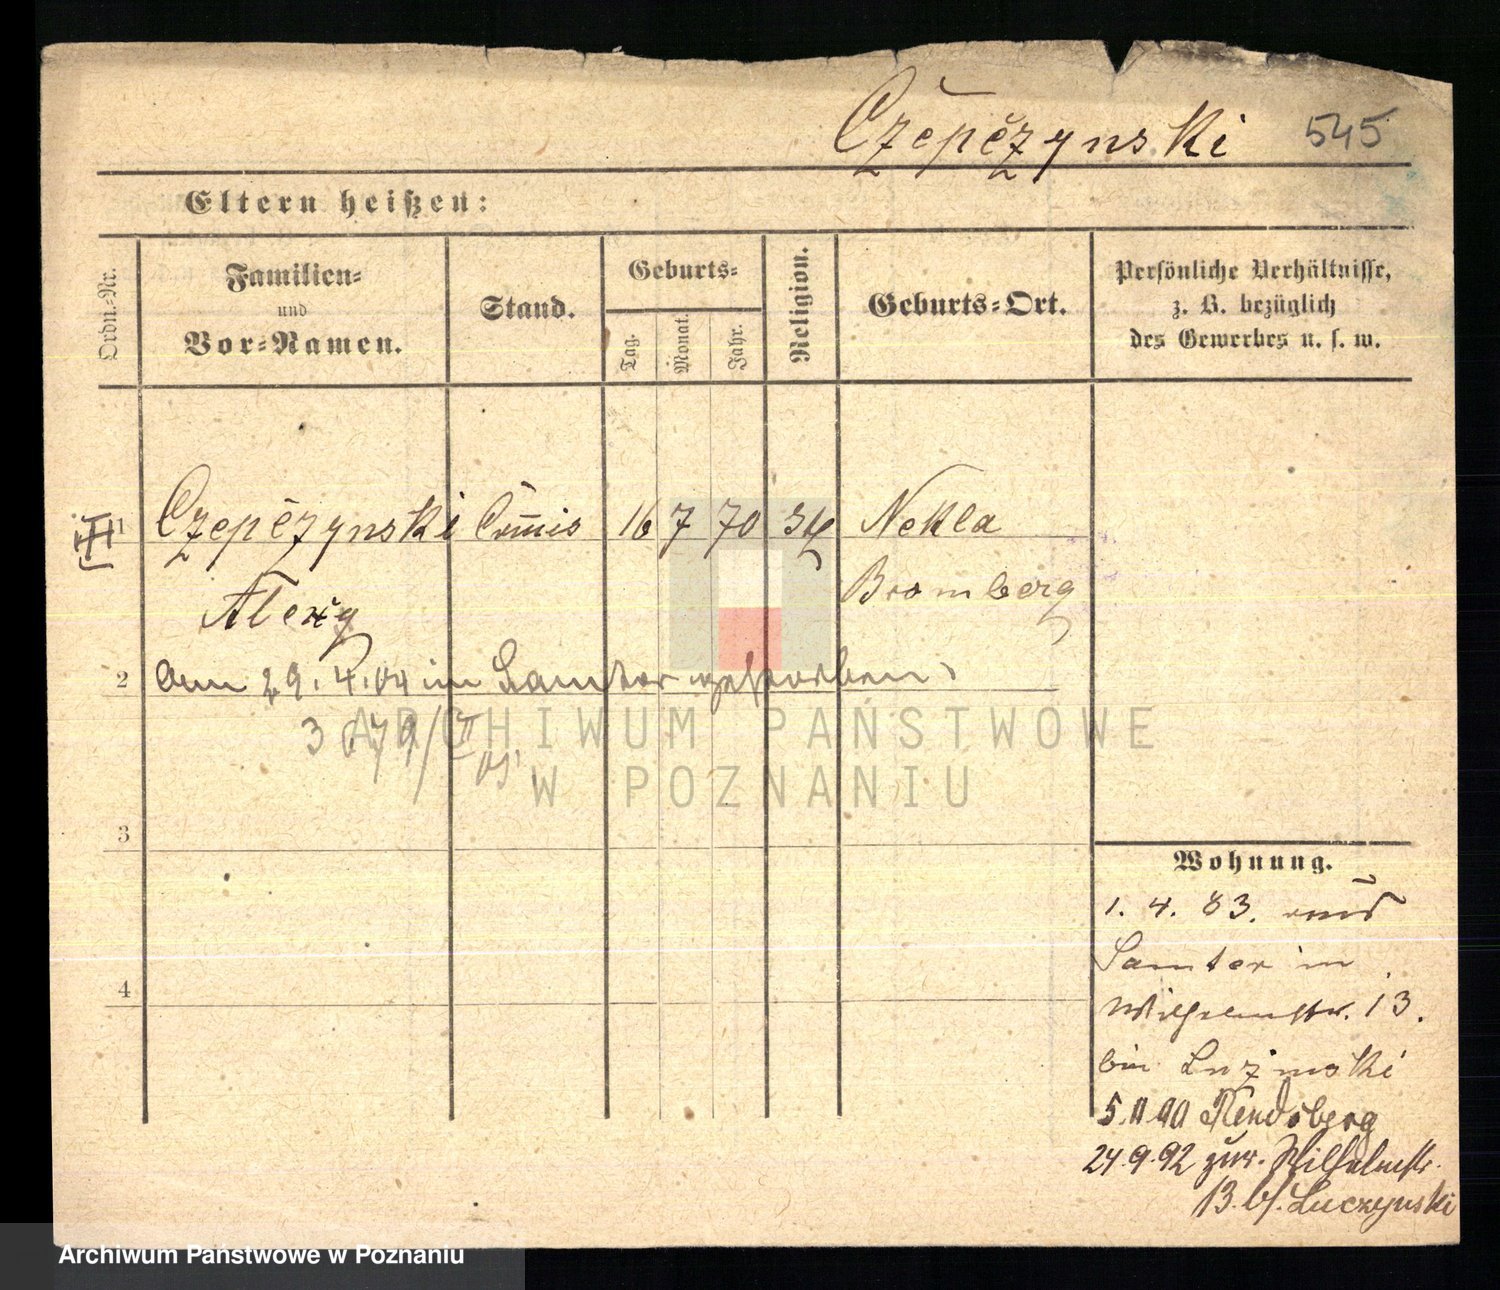 Czepĕzynski 545
Eltern heißen:
Ordn.-Nr.
Familien-
und
Vor-Namen.
Stand.
Geburts-
Tag.
Monat.
Jahr.
Religion.
Geburts-Ort.
Persönliche Verhältnisse,
z. B. bezüglich
des Gewerbes u. s. w.
1 Czepĕzynski Com̅is 16 7 70 Nekla
Bromberg
Alexy
2 am 29.4.04 in Samter gestorben
3
4
ARCHIWUM PAŃSTWOWE
W POZNANIU
Wohnung.
1. 4. 83. aus
Samter in
Wilhelmstr. 13.
bei
5.11.90 Rendsberg
24.9.92 zur. Wilhelmstr.
13. b/. Luczynski
Archiwum Państwowe w Poznaniu